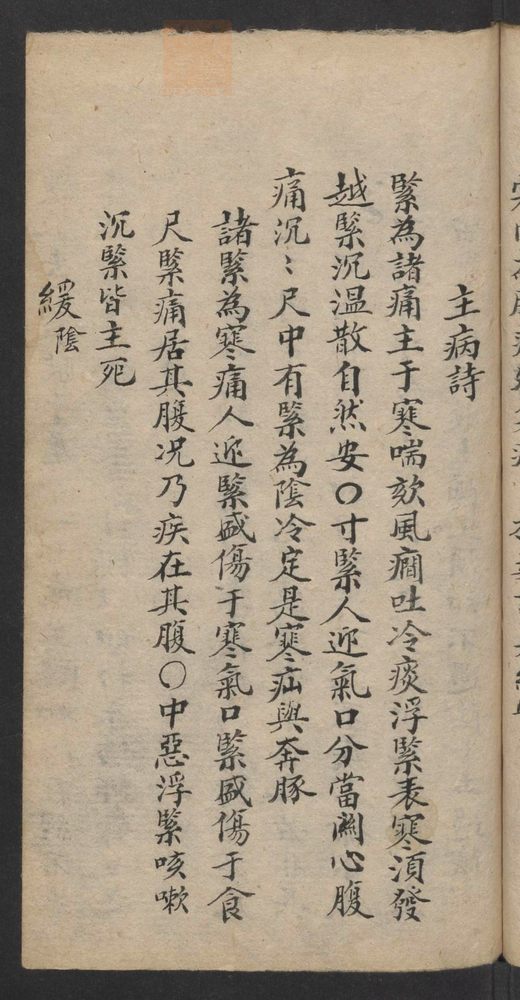 主病詩
緊為諸痛主于寒喘欬風癇吐冷痰浮緊表寒須發
越緊沉温散自然安〇寸緊人迎氣口分當關心腹
痛沉〻尺中有緊為陰冷定是寒疝與奔豚
諸緊為寒痛人迎緊盛傷于寒氣口緊盛傷于食
尺緊痛居其腹况乃疾在其腹〇中惡浮緊咳嗽
沉緊皆主死
緩陰